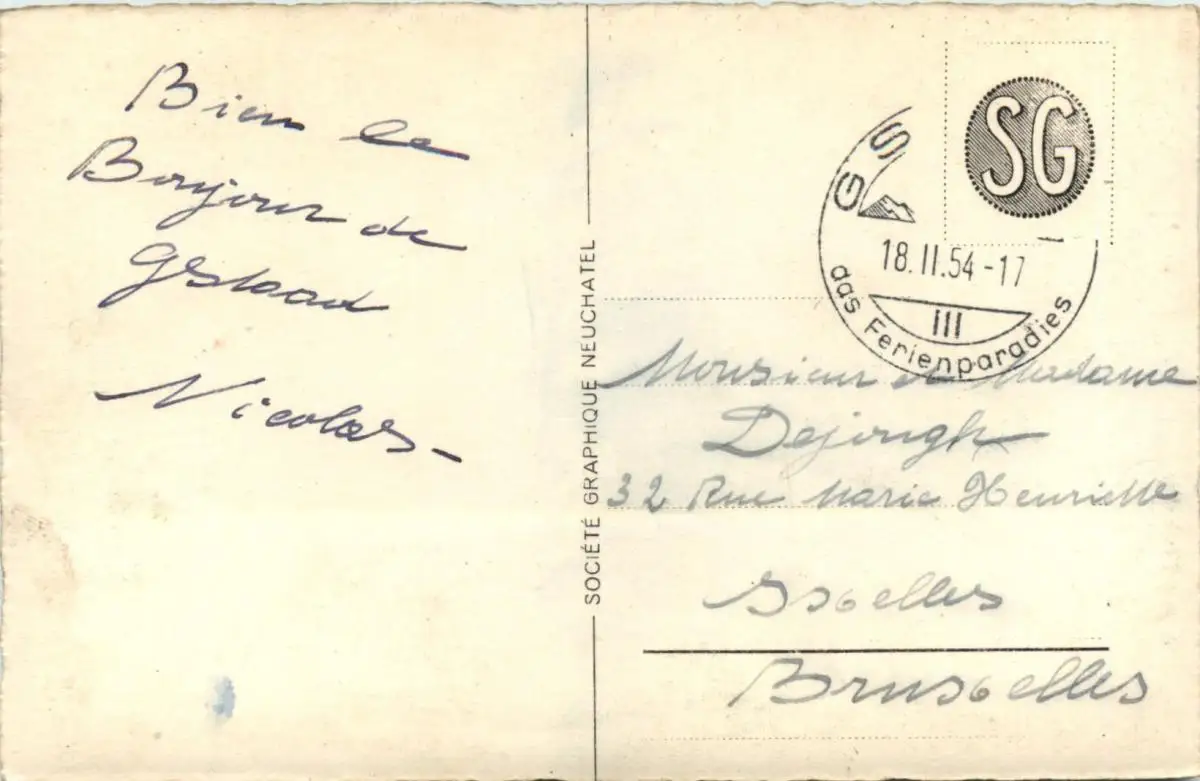 Bien le
Bonjour de
Gstaad
Nicolas -
SOCIÉTÉ GRAPHIQUE NEUCHATEL
SG
GS
18.II.54-17
III
das Ferienparadies
Monsieur et Madame
Dejongh
32 Rue Marie Henriette
Ixelles
Bruxelles